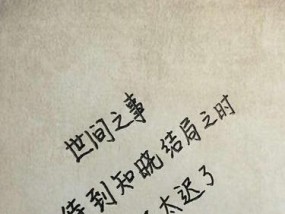 世间之事
待到知晓结局之时
太迟了